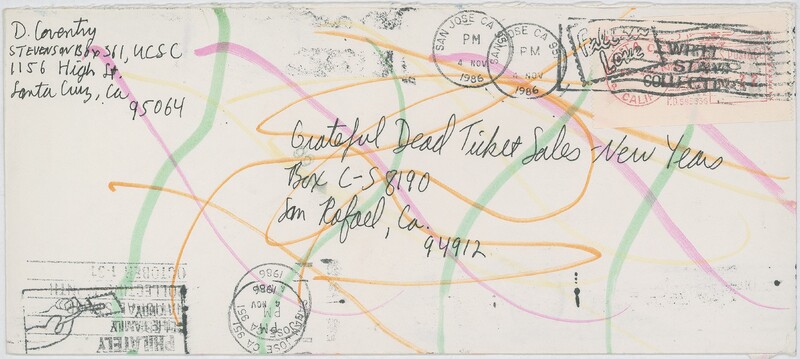 D. Coventry
STEVENSON Box 361, UCSC
1156 High St.
Santa Cruz, Ca
95064
SAN JOSE CA 951
PM
4 NOV
1986
SAN JOSE CA 951
PM
4 NOV
1986
Love
WRITE
STAMP
COLLECTING
CALIF
Grateful Dead Ticket Sales - New Years
Box C-S 8190
San Rafael, Ca.
94912
OCTOBER 1-31
PHILATELY
SAN JOSE CA 951
PM
4 NOV
1986
SAN JOSE CA 951
PM
4 NOV
1986